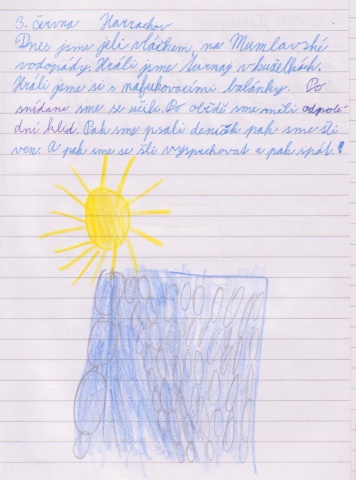 3. června Harrachov
Dnes jsme jeli vláčkem, na Mumlavské
vodopády. Hráli jsme turnaj v kuželkách.
Hráli jsme si s nafukovacími balónky. Po
snídani sme se učili. Po obědě sme měli odpole-
dní klid. Pak sme psali deníček pak sme šli
ven. A pak sme se šli vysprchovat a pak spát.!